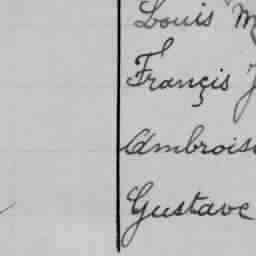 Louis M
Françis J
Ambrois
Gustave